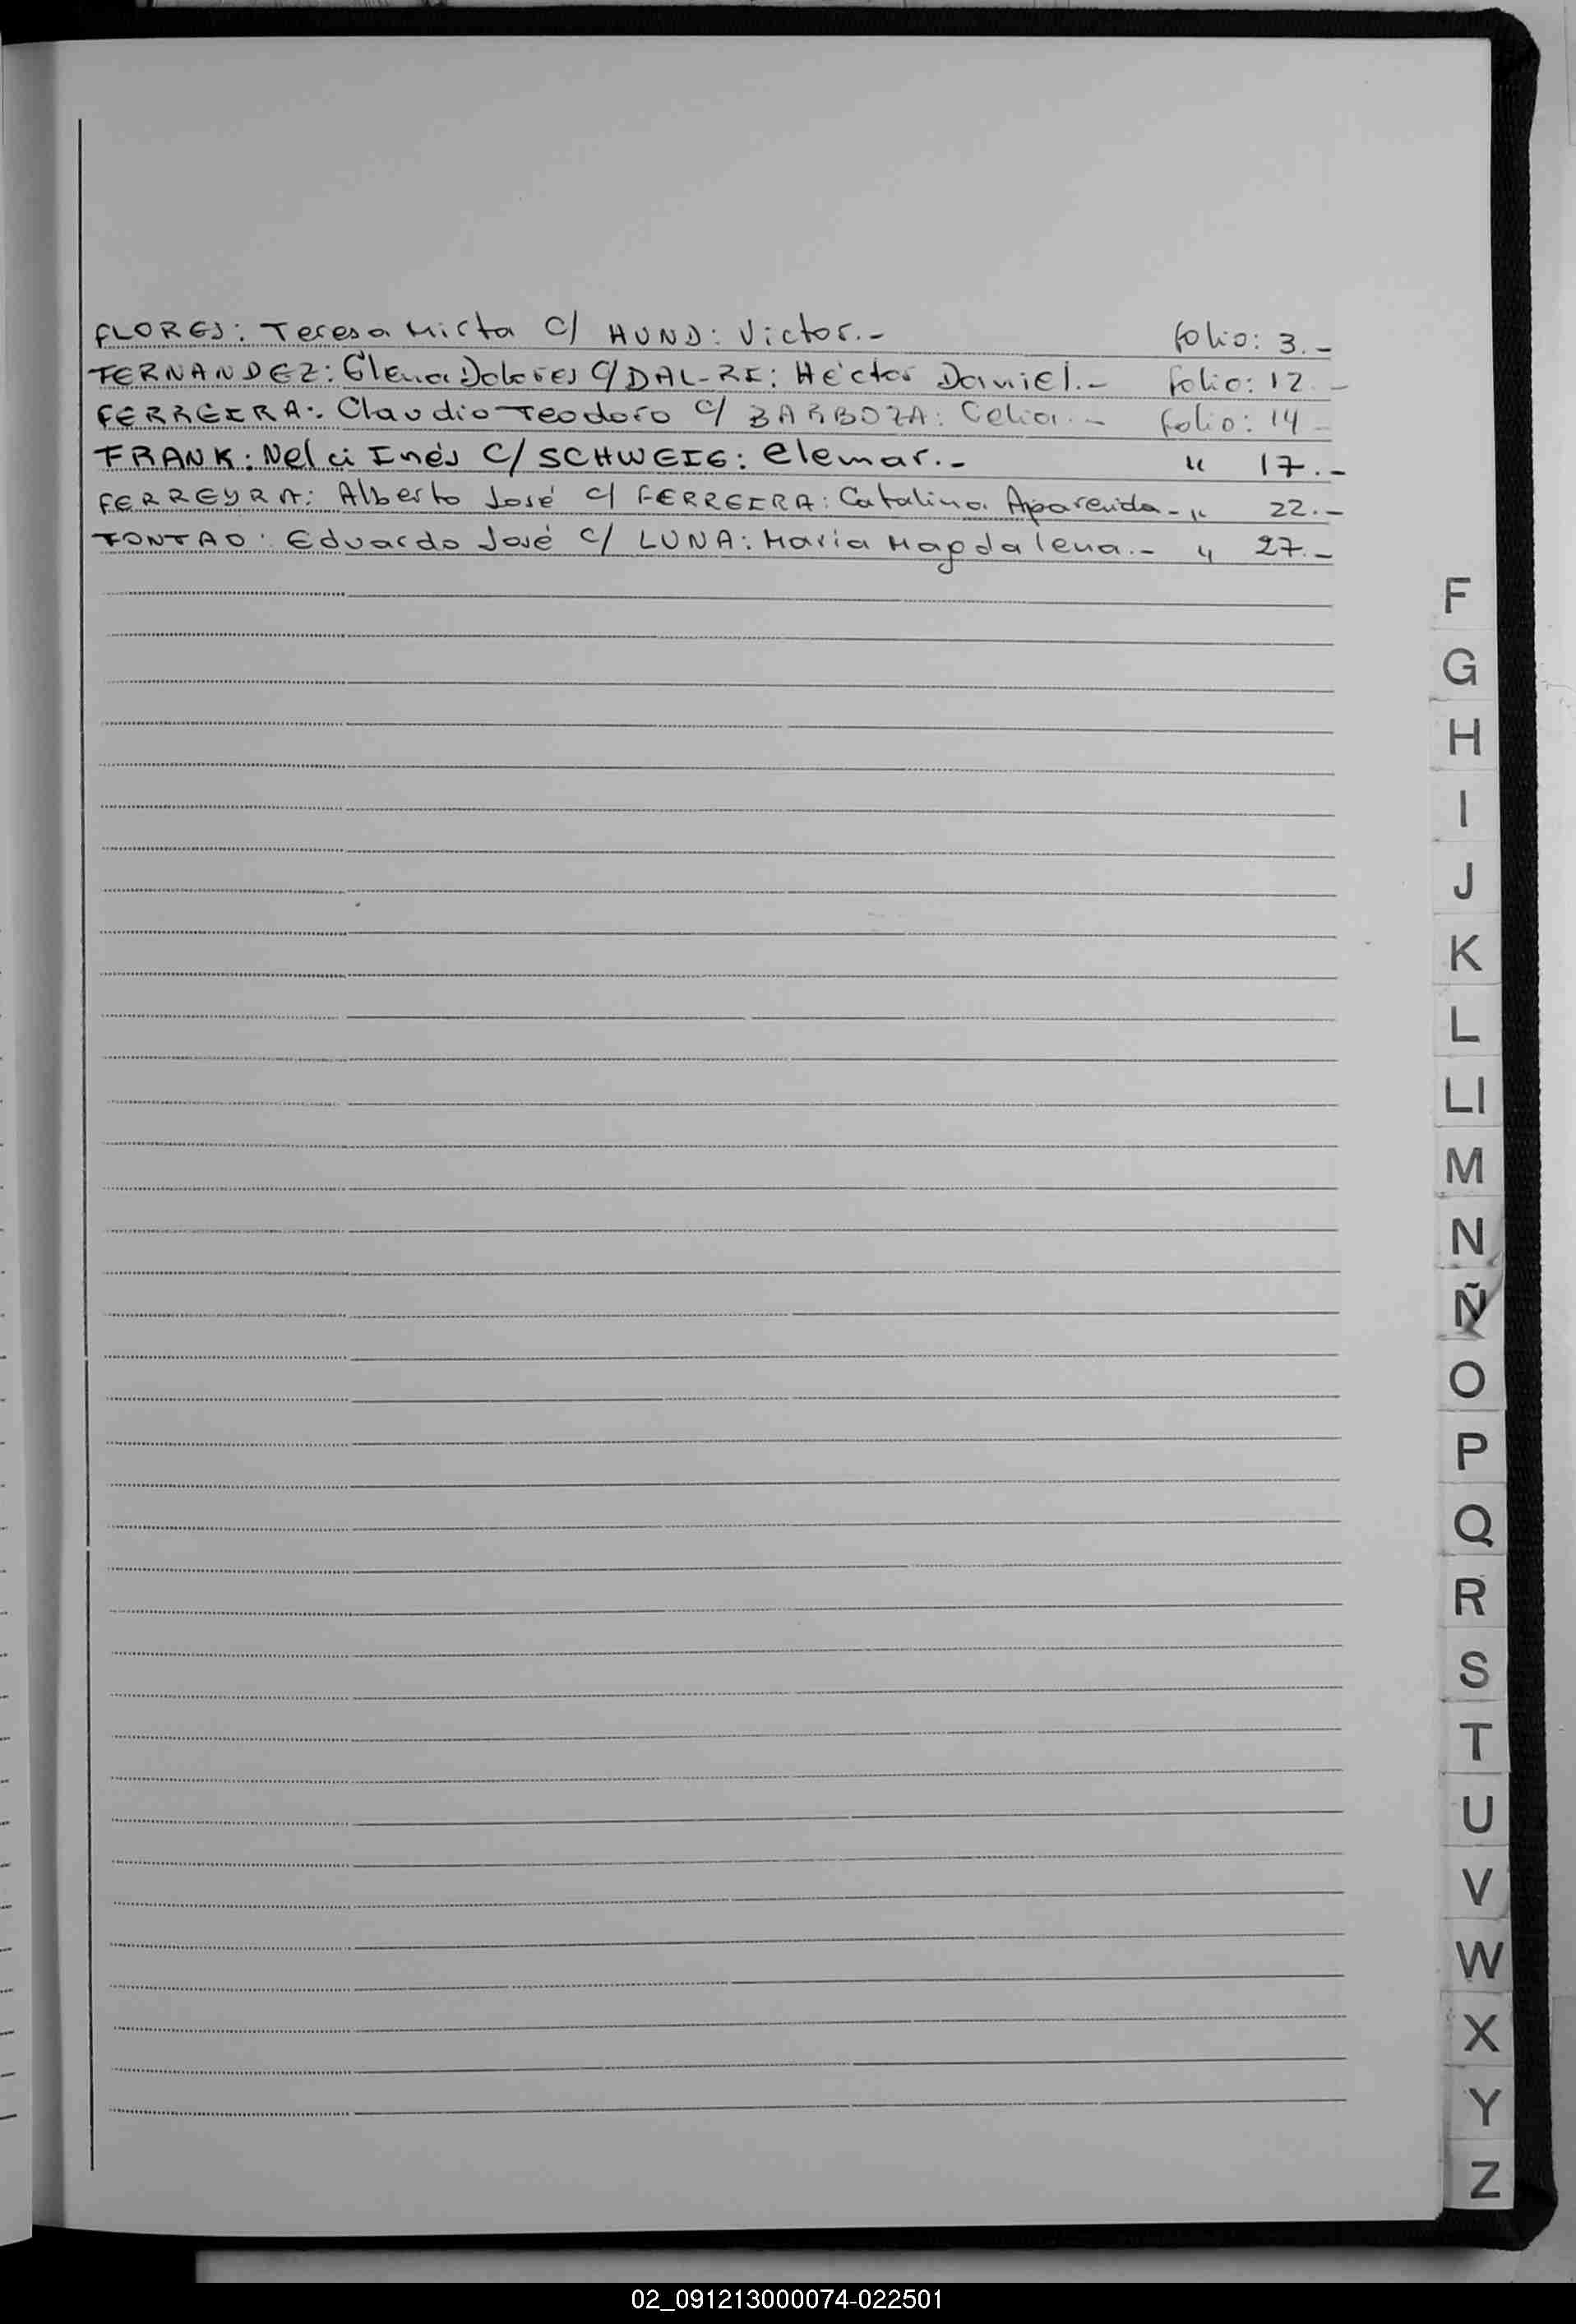 FLORES: Teresa Mirta C/ HUND: Victor.- folio: 3.-
FERNANDEZ: Elena Dolores C/ DAL-RI: Héctor Daniel.- folio: 12.-
FERREIRA: Claudio Teodoro C/ BARBOZA: Celia.- folio: 14.-
FRANK: Nelci Inés C/ SCHWEIG: Elemar.- " 17.-
FERREYRA: Alberto José C/ FERREIRA: Catalina Aparecida- " 22.-
FONTAO: Eduardo José C/ LUNA: Maria Magdalena.- " 27.-
F
G
H
I
J
K
L
Ll
M
N
Ñ
O
P
Q
R
S
T
U
V
W
X
Y
Z
02_091213000074-022501